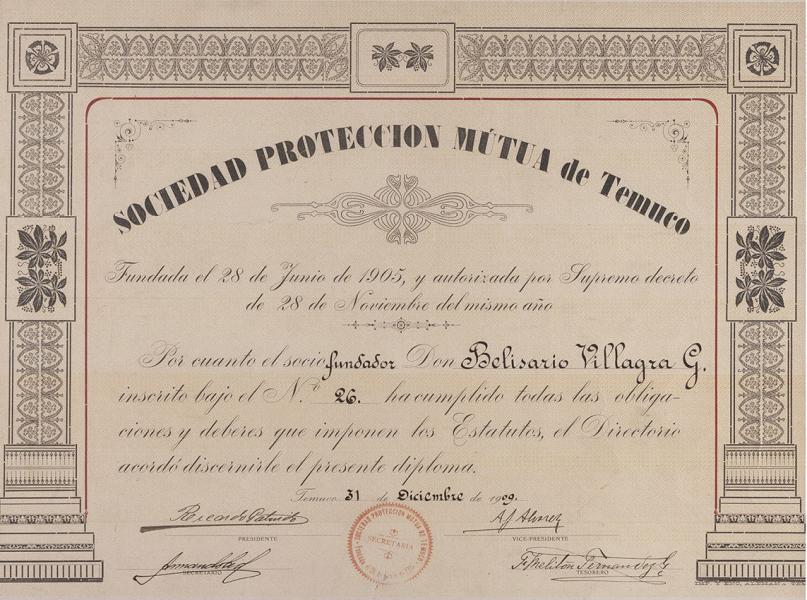 SOCIEDAD PROTECCION MÚTUA de Temuco
Fundada el 28 de Junio de 1905, y autorizada por Supremo decreto
de 28 de Noviembre del mismo año
Por cuanto el socio fundador Don Belisario Villagra G.
inscrito bajo el N.º 26. ha cumplido todas las obliga-
ciones y deberes que imponen los Estatutos, el Directorio
acordó discernirle el presente diploma.
Temuco 31 de Diciembre de 1909.
PRESIDENTE
VICE-PRESIDENTE
SOCIEDAD PROTECCION MUTUA DE TEMUCO
SECRETARIA
SECRETARIO
TESORERO
IMP. Y ENC. ALEMANA